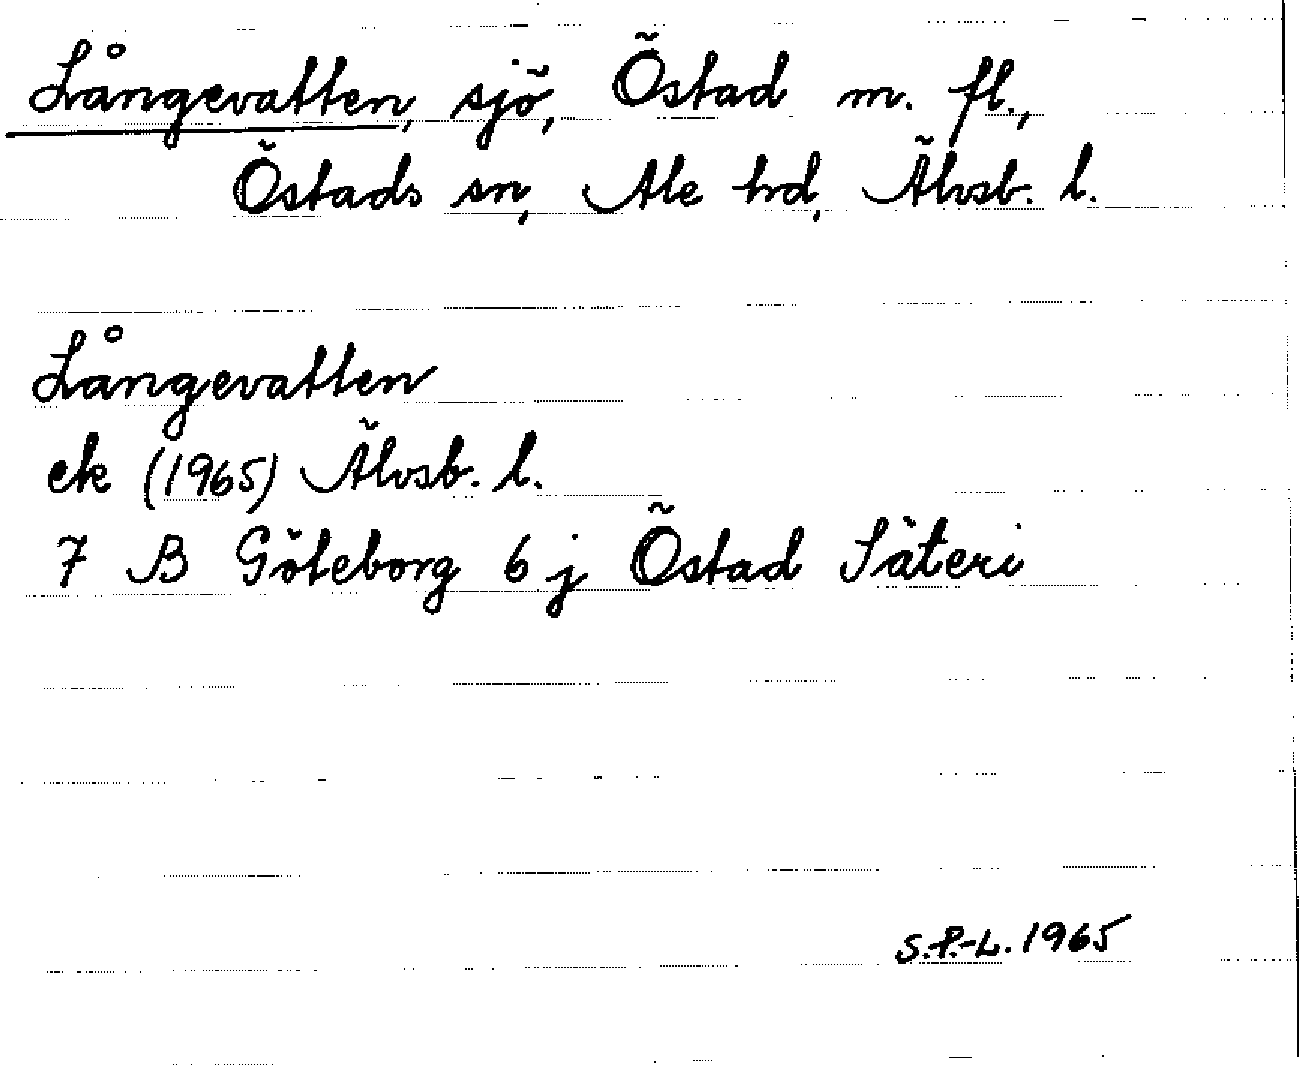 Långevatten, sjö, Östad m. fl.,
Östads sn, Ale hd, Älvsb. l.
Långevatten
ek (1965) Älvsb. l.
7 B Göteborg 6 j Östad Säteri
S.P.-L. 1965